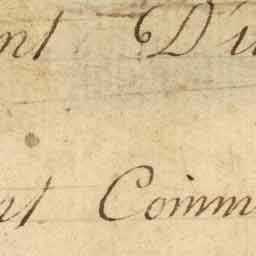 nt D'u
nt Comm